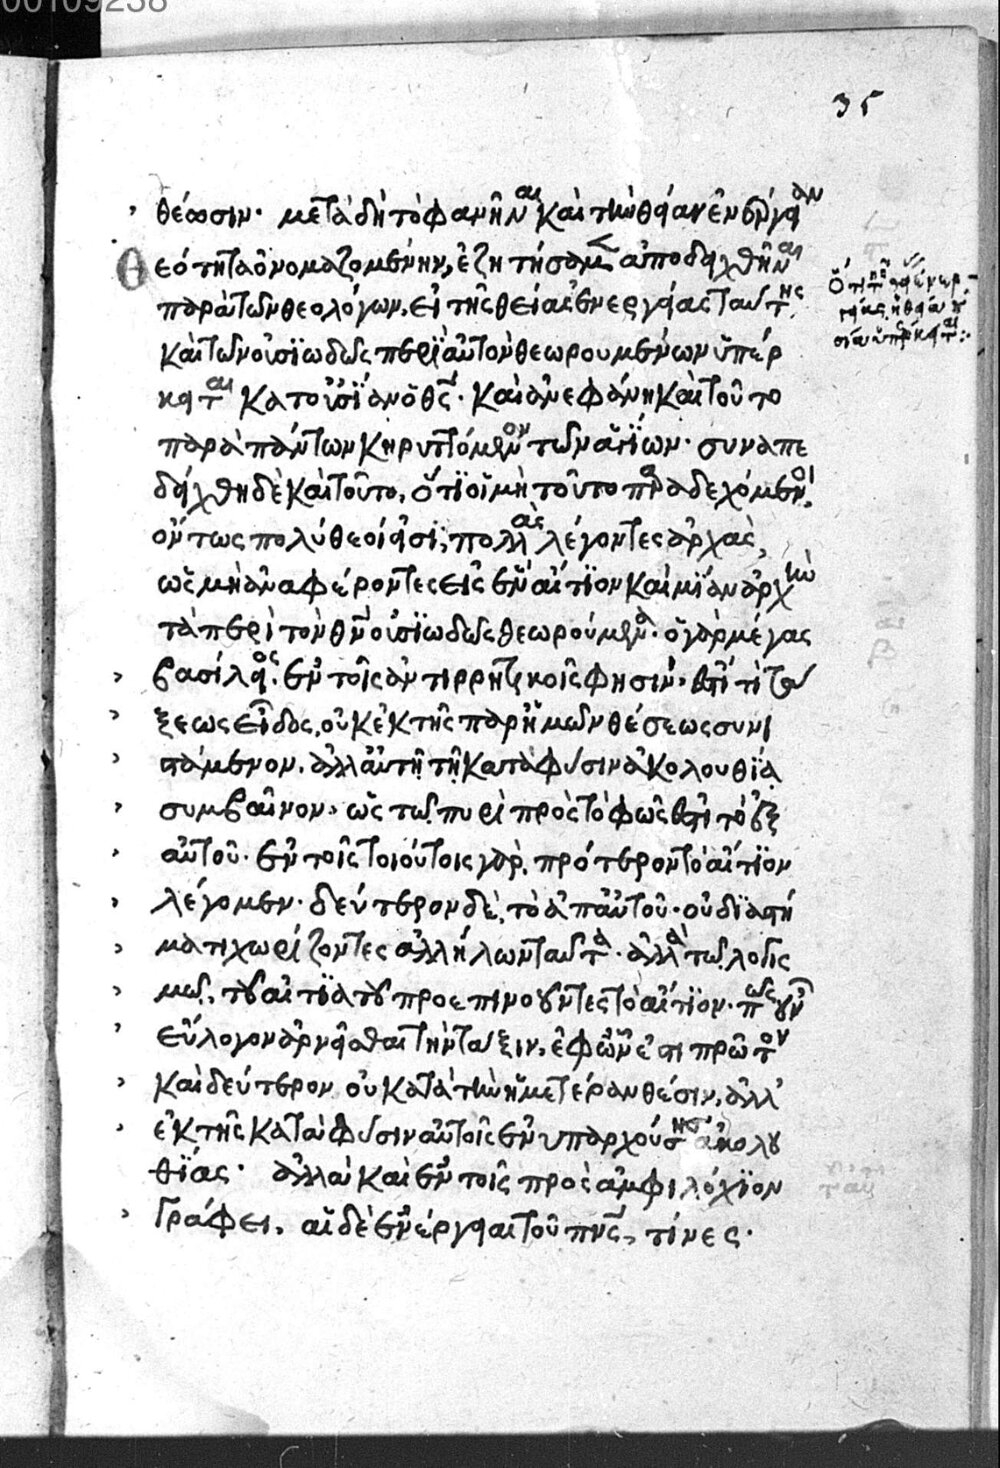 00109238
35
θέωσιν· μετὰ δὴ τὸ φανῆναι καὶ τὴν θείαν ἐνέργειαν
Θεότητα ὀνομαζομένην, ἐζητήσαμεν ἀποδειχθῆναι
παρὰ τῶν θεολόγων, εἰ τῆς θείας ἐνεργείας ταύτης
καὶ τῶν οὐσιωδῶς περὶ αὐτὸν θεωρουμένων ὑπέρ
κειται κατ' οὐσίαν ὁ θς· καὶ ἀνεφάνη καὶ τοῦτο
παρὰ πάντων κηρυττόμενον τῶν ἁγίων· συναπε
δείχθη δὲ καὶ τοῦτο, ὅτι οἱ μὴ τοῦτο παραδεχόμενοι,
ὄντως πολύθεοί εἰσι, πολλὰς λέγοντες ἀρχὰς,
ὡς μὴ ἀναφέροντες εἰς ἓν αἴτιον καὶ μίαν ἀρχὴν
τὰ περὶ τὸν θν οὐσιωδῶς θεωρούμενα· ὁ γὰρ μέγας
βασίλειος ἐν τοῖς ἀντιρρητικοῖς φησιν· ἐστί τι τά
ξεως εἶδος, οὐκ ἐκ τῆς παρ' ἡμῶν θέσεως συνι
στάμενον, ἀλλ' αὐτῇ τῇ κατὰ φύσιν ἀκολουθίᾳ
συμβαῖνον, ὡς τῷ πυρὶ πρὸς τὸ φῶς ἐστι τὸ ἐξ
αὐτοῦ· ἐν τοῖς τοιούτοις γὰρ, πρότερον τὸ αἴτιον
λέγομεν· δεύτερον δὲ, τὸ ἀπ' αὐτοῦ· οὐ διαστή
ματι χωρίζοντες ἀλλήλων ταῦτα· ἀλλὰ τῷ λογισ
μῷ, τοῦ αἰτιατοῦ προεπινοοῦντες τὸ αἴτιον· πῶς οὖν
εὔλογον ἀρνεῖσθαι τὴν τάξιν, ἐφ' ὧν ἐστι πρῶτον
καὶ δεύτερον, οὐ κατὰ τὴν ἡμετέραν θέσιν, ἀλλ'
ἐκ τῆς κατὰ φύσιν αὐτοῖς ἐνυπαρχούσης ἀκολου
θίας· ἀλλὰ καὶ ἐν τοῖς πρὸς ἀμφιλόχιον
γράφει, αἱ δὲ ἐνέργειαι τοῦ πνς, τίνες·
ὅτι τῆς θείας ἐνερ
γείας, ἡ θεία οὐ
σία ὑπέρκειται: